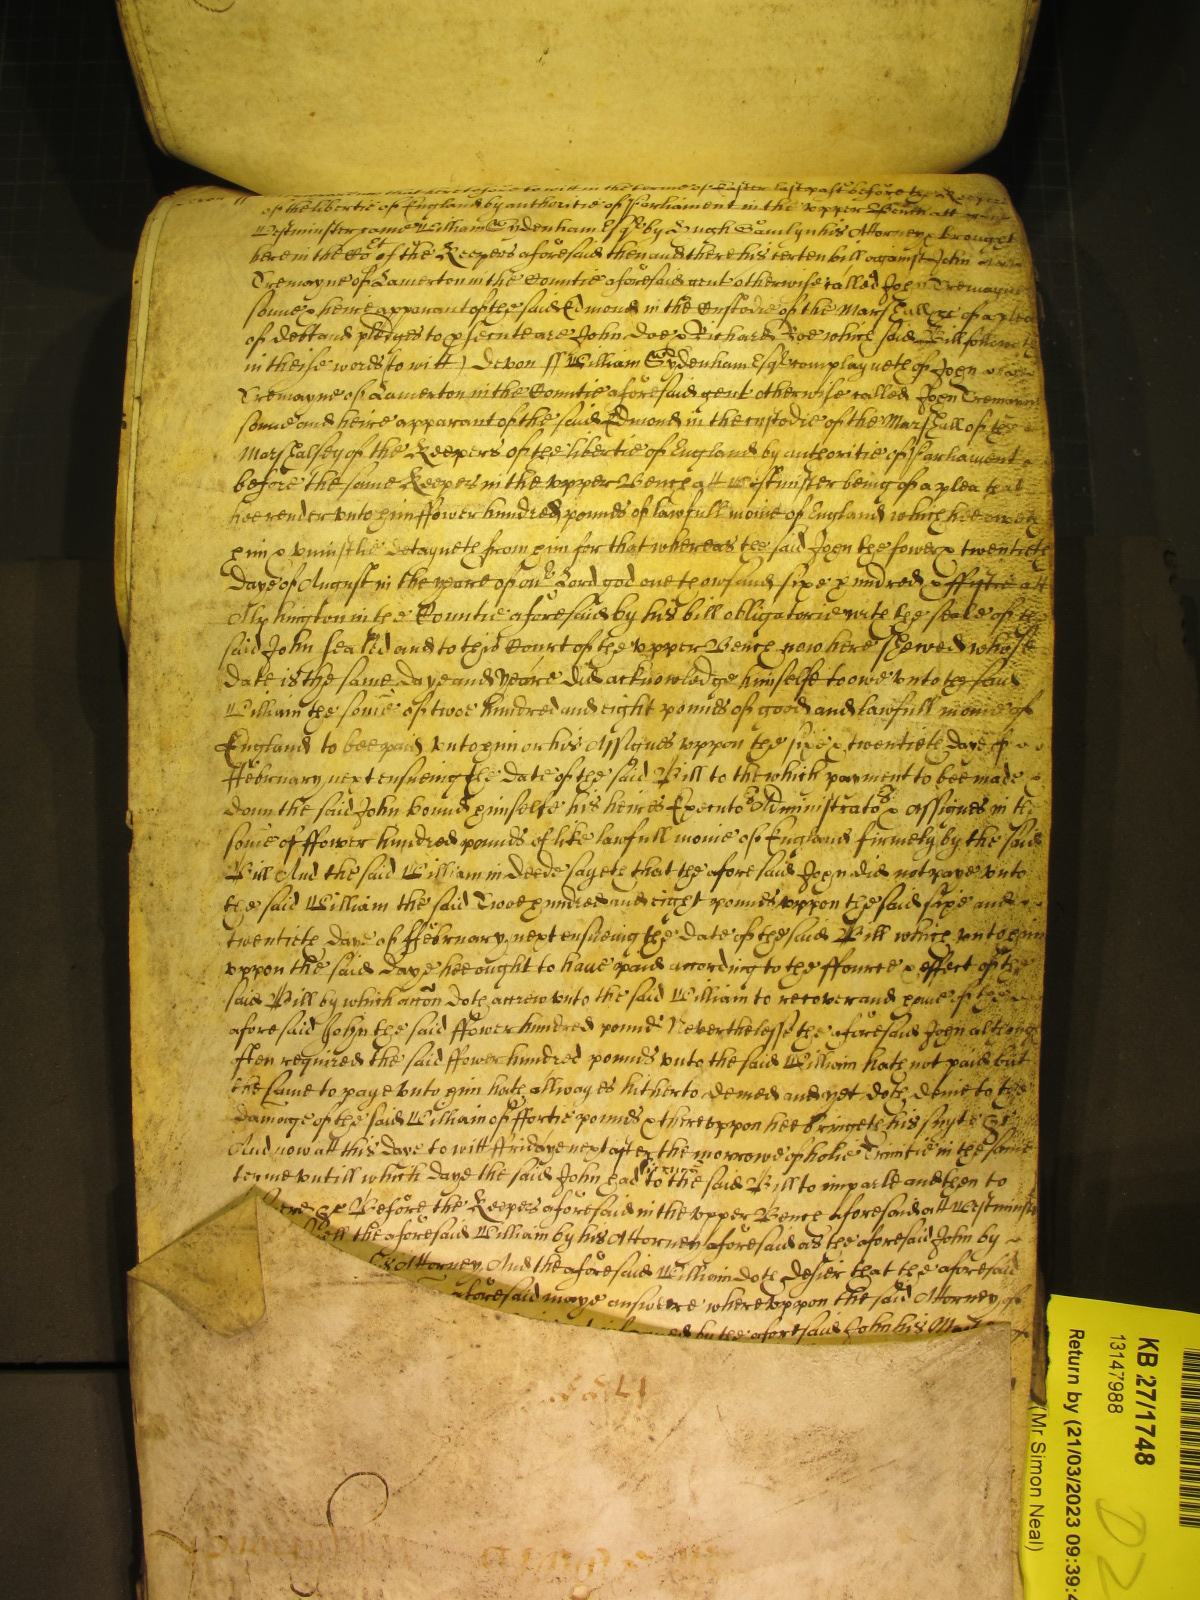 that heretofore to witt in the terme of Easter last past before the Keepers
of the libertie of England by authoritie of Parliament in the vpper Bench att
Westminster came William Sydenham Esqr by Hugh his Attorney & brought
here in the Cort of the Keepers aforesaid then and there his certen bill against John
Tremayne of Lamerton in the Countie aforesaid gent otherwise called John Tremayne
sonne & heire apparant of the said Edmond in the Custodie of the Marshall &c of a plea
of debt and pledges to psecute are John Doe & Richard Roe which said Bill followeth
in theise words to witt) Devon ss William Sydenham Esqr complayneth of John
Tremayne of Lamerton in the Countie aforesaid gent otherwise called John Tremayne
sonne and heire apparant of the said Edmond in the custodie of the Marshall of the
Marshalsey of the Keepers of the libertie of England by authoritie of Parliament
before the same Keepers in the vpper Bench att Westminster being of a plea that
hee render vnto him ffower hundred pounds of lawfull monie of England which hee oweth
him & vniustlie detayneth from him for that whereas the said John the fower & twentieth
Daye of August in the yeare of our Lord god one thowsand sixe hundred & ffiftie att
in the Countie aforesaid by his bill obligatorie with the seale of the
said John sealed and to this Court of the vpper Bench now here shewed whose
date is the same daye and yeare did acknowledge himselfe to owe vnto the said
William the some of twoe hundred and eight pounds of good and lawfull monie of
England to bee paid vnto him or his Assignes vppon the sixe & twentieth daye of
ffebruary next ensueing the date of the said Bill to the which payment to bee made
donn the said John bound himselfe his heires Executors Administrators & Assignes in the
some of ffower hundred pounds of like lawfull monie of England firmely by the said
Bill And the said William in deede sayeth that the aforesaid John did not paye vnto
the said William the said Twoe hundred and eight pounds vppon the said sixe and
twentieth daye of ffebruary next ensueing the date of the said Bill which vnto him
vppon the said daye hee ought to have paid according to the fforce & effect of the
said Bill by which accon doth accrew vnto the said William to recover and have of the
aforesaid John the said ffower hundred pounds Neverthelesse the aforesaid John although
often required the said ffower hundred pounds vnto the said William hath not paid but
the same to paye vnto him hath allwayes hitherto denied and yet doth denie to the
damage of the said William of ffortie pounds & therevppon hee bringeth his suyte &c
And now att this daye to witt ffridaye next after the morrowe of holie Trinitie in the same
terme vntill which daye the said John had licence to the said Bill to imparle and then to
&c Before the Keepers aforesaid in the vpper Bench aforesaid att Westminster
well the aforesaid William by his Attorney aforesaid as the aforesaid John by
Attorney And the aforesaid William doth desier that the aforesaid
aforesaid maye answere wherevppon the said Attorney of
by the aforesaid John his
KB 27/1748
13147988
Return by (21/03/2023 09:39:4
(Mr Simon Neal)
D2